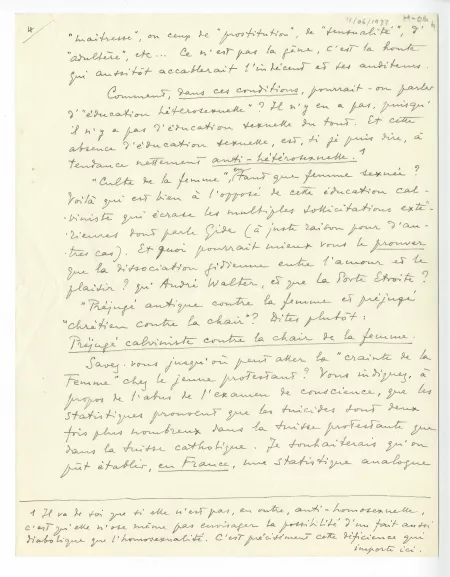 "maîtresse", ou ceux de "prostitution", de "sensualité", d'
"adultère", etc... Ce n'est pas la gêne, c'est la honte
qui aussitôt accablerait l'indécent et ses auditeurs.
Comment, dans ces conditions, pourrait-on parler
d'"éducation hétérosexuelle"? Il n'y en a pas, puisqu'
il n'y a pas d'éducation sexuelle du tout. Et cette
absence d'éducation sexuelle est, si je puis dire, à
tendance nettement anti-hétérosexuelle. 1
"Culte de la femme", tant que femme sexuée?
Voilà qui est bien à l'opposé de cette éducation cal-
viniste qui écrase les multiples sollicitations exté-
rieures dont parle Gide (à juste raison pour d'au-
tres cas). Et quoi pourrait mieux vous le prouver
que la dissociation gidienne entre l'amour et le
plaisir? qu'André Walter, et que la Porte Etroite?
"Préjugé antique contre la femme et préjugé
"chrétien contre la chair"? Dites plutôt:
Préjugé calviniste contre la chair de la femme.
Savez-vous jusqu'où peut aller la "crainte de la
Femme" chez le jeune protestant? Vous indiquez, à
propos de l'abus de l'examen de conscience, que les
statistiques prouvent que les suicides sont deux
fois plus nombreux dans la Suisse protestante que
dans la Suisse catholique. Je souhaiterais qu'on
pût établir, en France, une statistique analogue
1 Il va de soi que si elle n'est pas, en outre, anti-homosexuelle,
c'est qu'elle n'ose même pas envisager la possibilité d'un fait aussi
diabolique que l'homosexualité. C'est précisément cette déficience qui
importe ici.